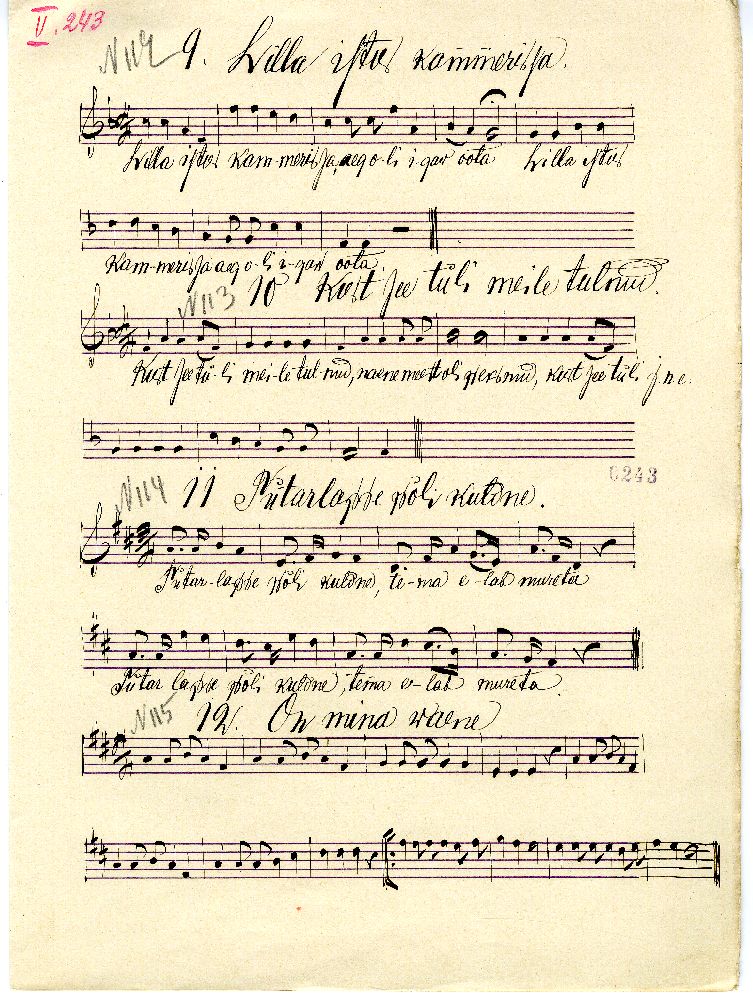 V. 243
N 112 9. Lilla istus kammerissa.
Lilla istus kam-meris-sa, aeg o-li i-gav oota Lilla istus
kam-merissa aeg o-li i-gav oota.
N 113 10 Kust see tuli meile tulnud.
Kust see tu-li mei-le tul-nud, naene meest oli peksnud, kust see tuli j.n.e.
6243
N 114 11 Putarlapse põli kuldne.
Putar-lapse põli kuldne, te-ma e-lab mureta
Putar lapse põli kuldne, tema e-lab mureta.
N 115 12. On mina waene